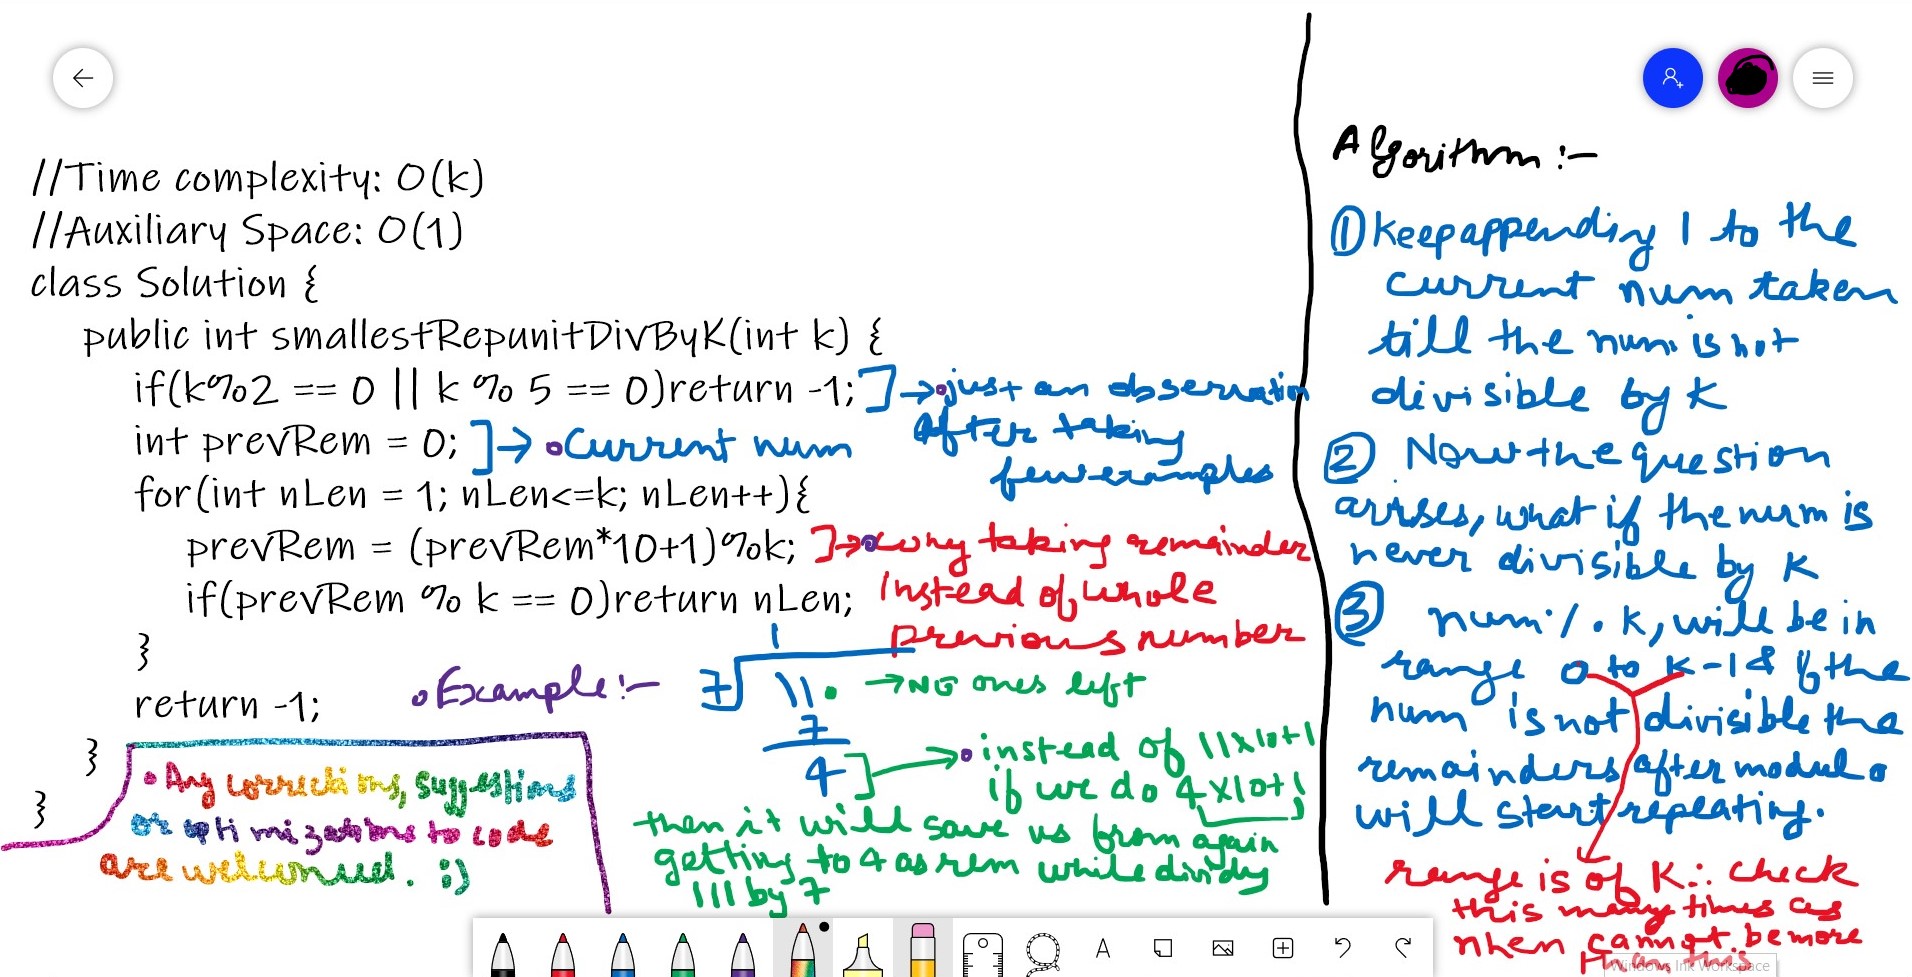 //Time complexity: O(k)
//Auxiliary Space: O(1)
class Solution {
public int smallestRepunitDivByK(int k) {
if(k%2 == 0 || k % 5 == 0)return -1;
just an observation
After taking
few examples
int prevRem = 0;
Current num
for(int nLen = 1; nLen<=k; nLen++){
prevRem = (prevRem*10+1)%k;
why taking remainder
instead of whole
previous number
if(prevRem % k == 0)return nLen;
}
return -1;
}
}
Example:-
1
7 11. → NO ones left
7
4
instead of 11x10+1
if we do 4x10+1
then it will save us from again
getting to 4 as rem while dividing
111 by 7
Any corrections, suggestions
or optimizations to code
are welcomed. :)
Algorithm:-
① Keep appending 1 to the
current num taken
till the num is not
divisible by K
② Now the question
arises, what if the num is
never divisible by K
③ num % k, will be in
range 0 to K-1 & if the
num is not divisible the
remainders after modulo
will start repeating.
range is of K ∴ check
this many times as
cannot be more
than this
Windows Ink Workspace
A